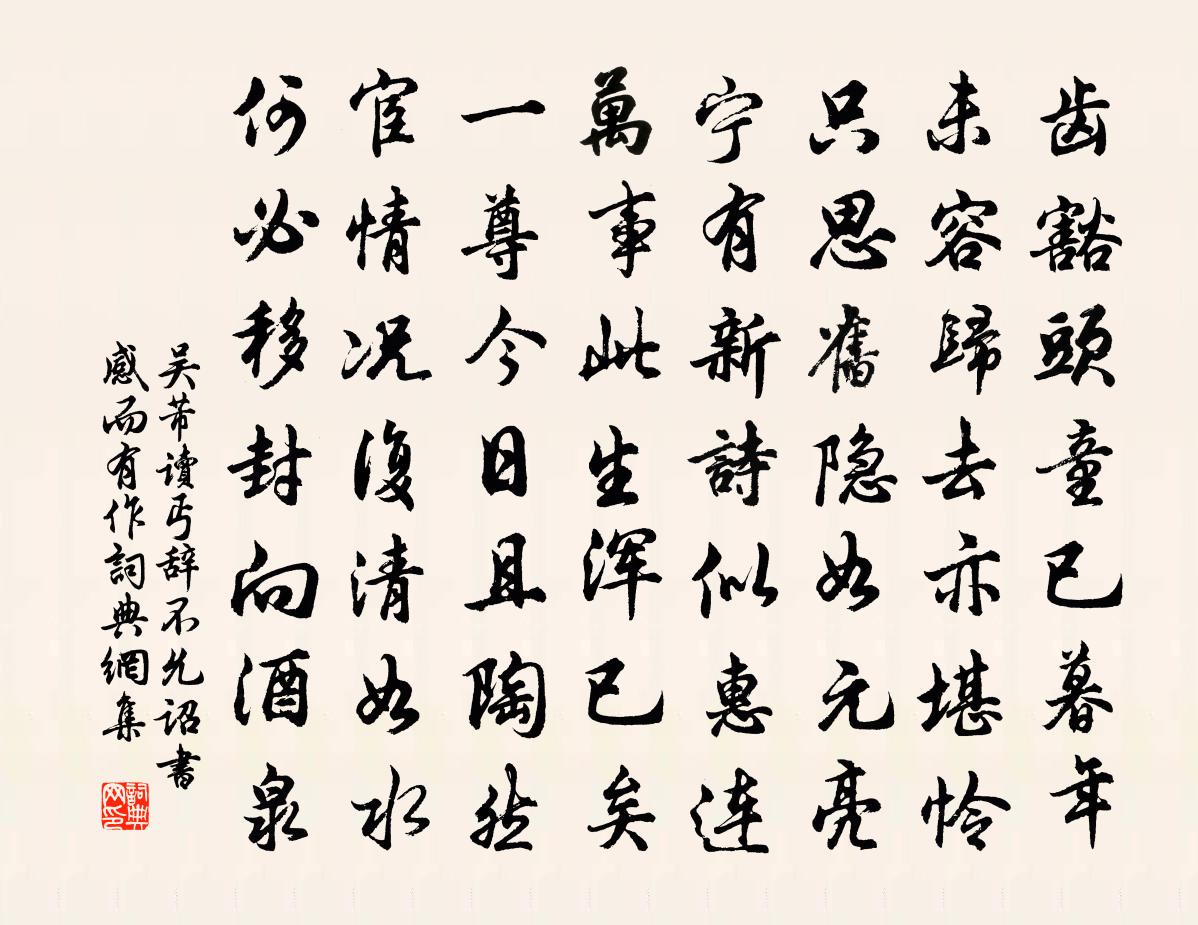 齿豁頭童已暮年
未容歸去亦堪怜
只思舊隐如元亮
宁有新詩似惠连
萬事此生浑已矣
一尊今日且陶然
宦情况復清如水
何必移封向酒泉
吴芾读丐辞不允诏書
感而有作詞典網集
詞典网印